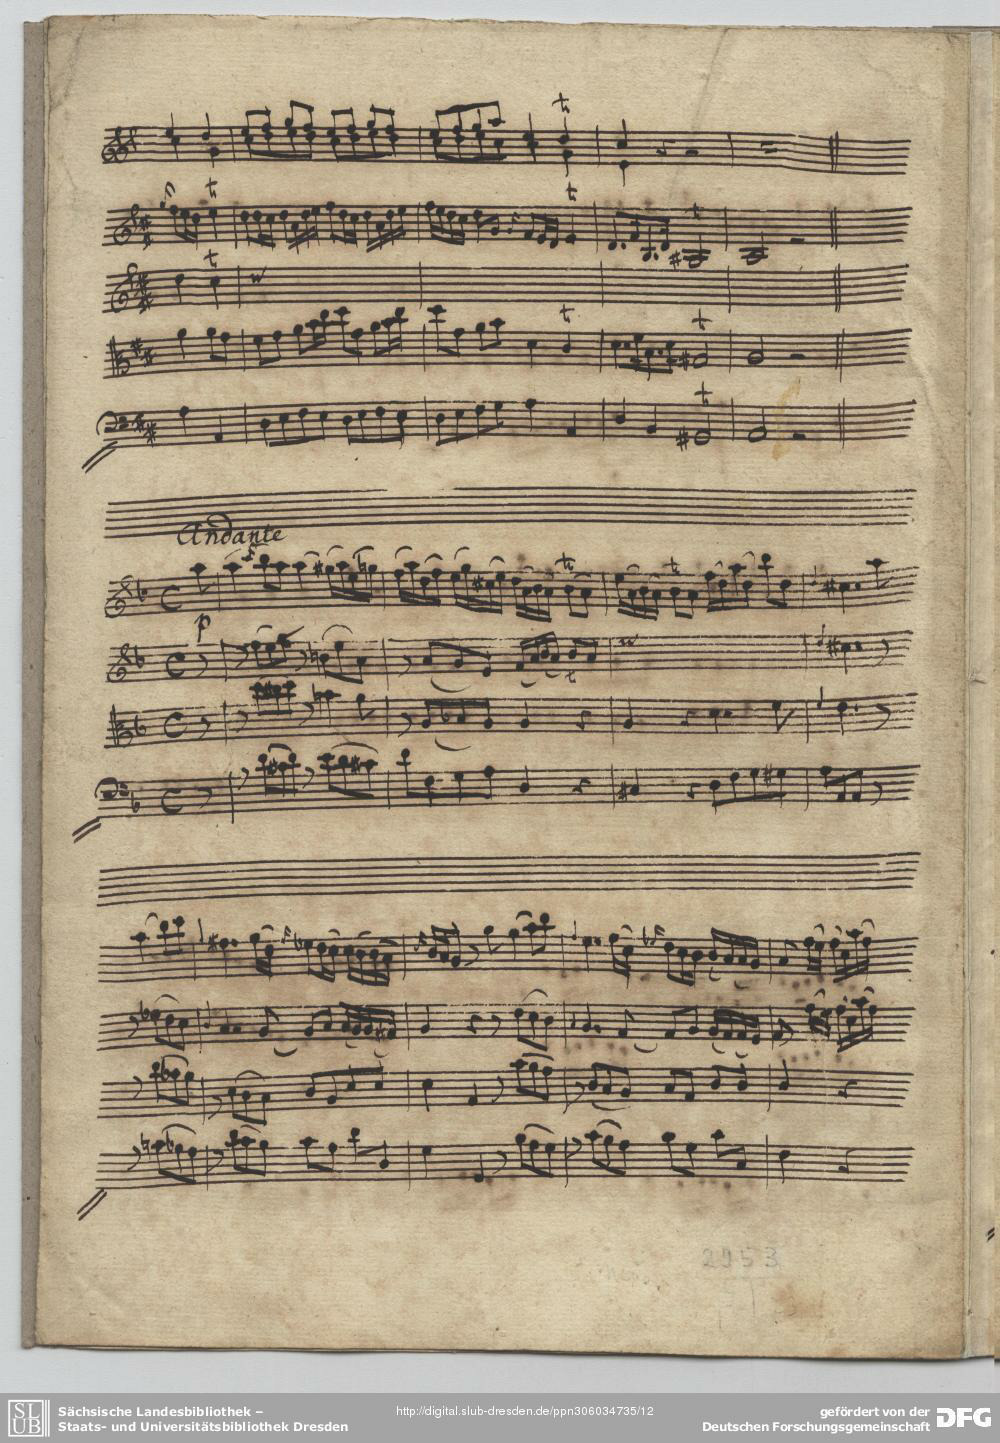 Andante
p
2953
SLUB
Sächsische Landesbibliothek –
Staats- und Universitätsbibliothek Dresden
http://digital.slub-dresden.de/ppn306034735/12
gefördert von der
Deutschen Forschungsgemeinschaft
DFG